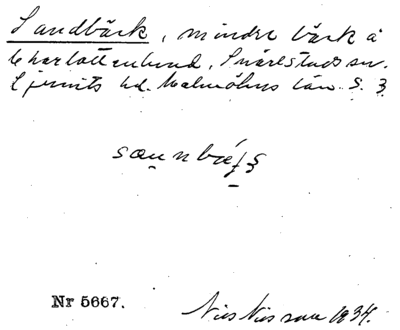 Sandbäck, mindre bäck å
Charlottenlund, Snårestads sn.
Ljunits hd. Malmöhus län. S. 3
Nr 5667.
Nils Nilsson 1934.